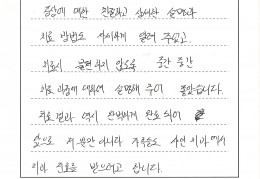 증상에 대한 친절하고 상세한 설명과
치료 방법도 자세하게 알려 주었고,
치료시 불편하지 않도록 중간 중간
치료 과정에 대하여 설명해 주어 좋았습니다.
치료 결과 역시 완벽하게 완료 되어
앞으로 저 뿐만 아니라 가족들도 사연 치과에서
치아 진료를 받으려고 합니다.